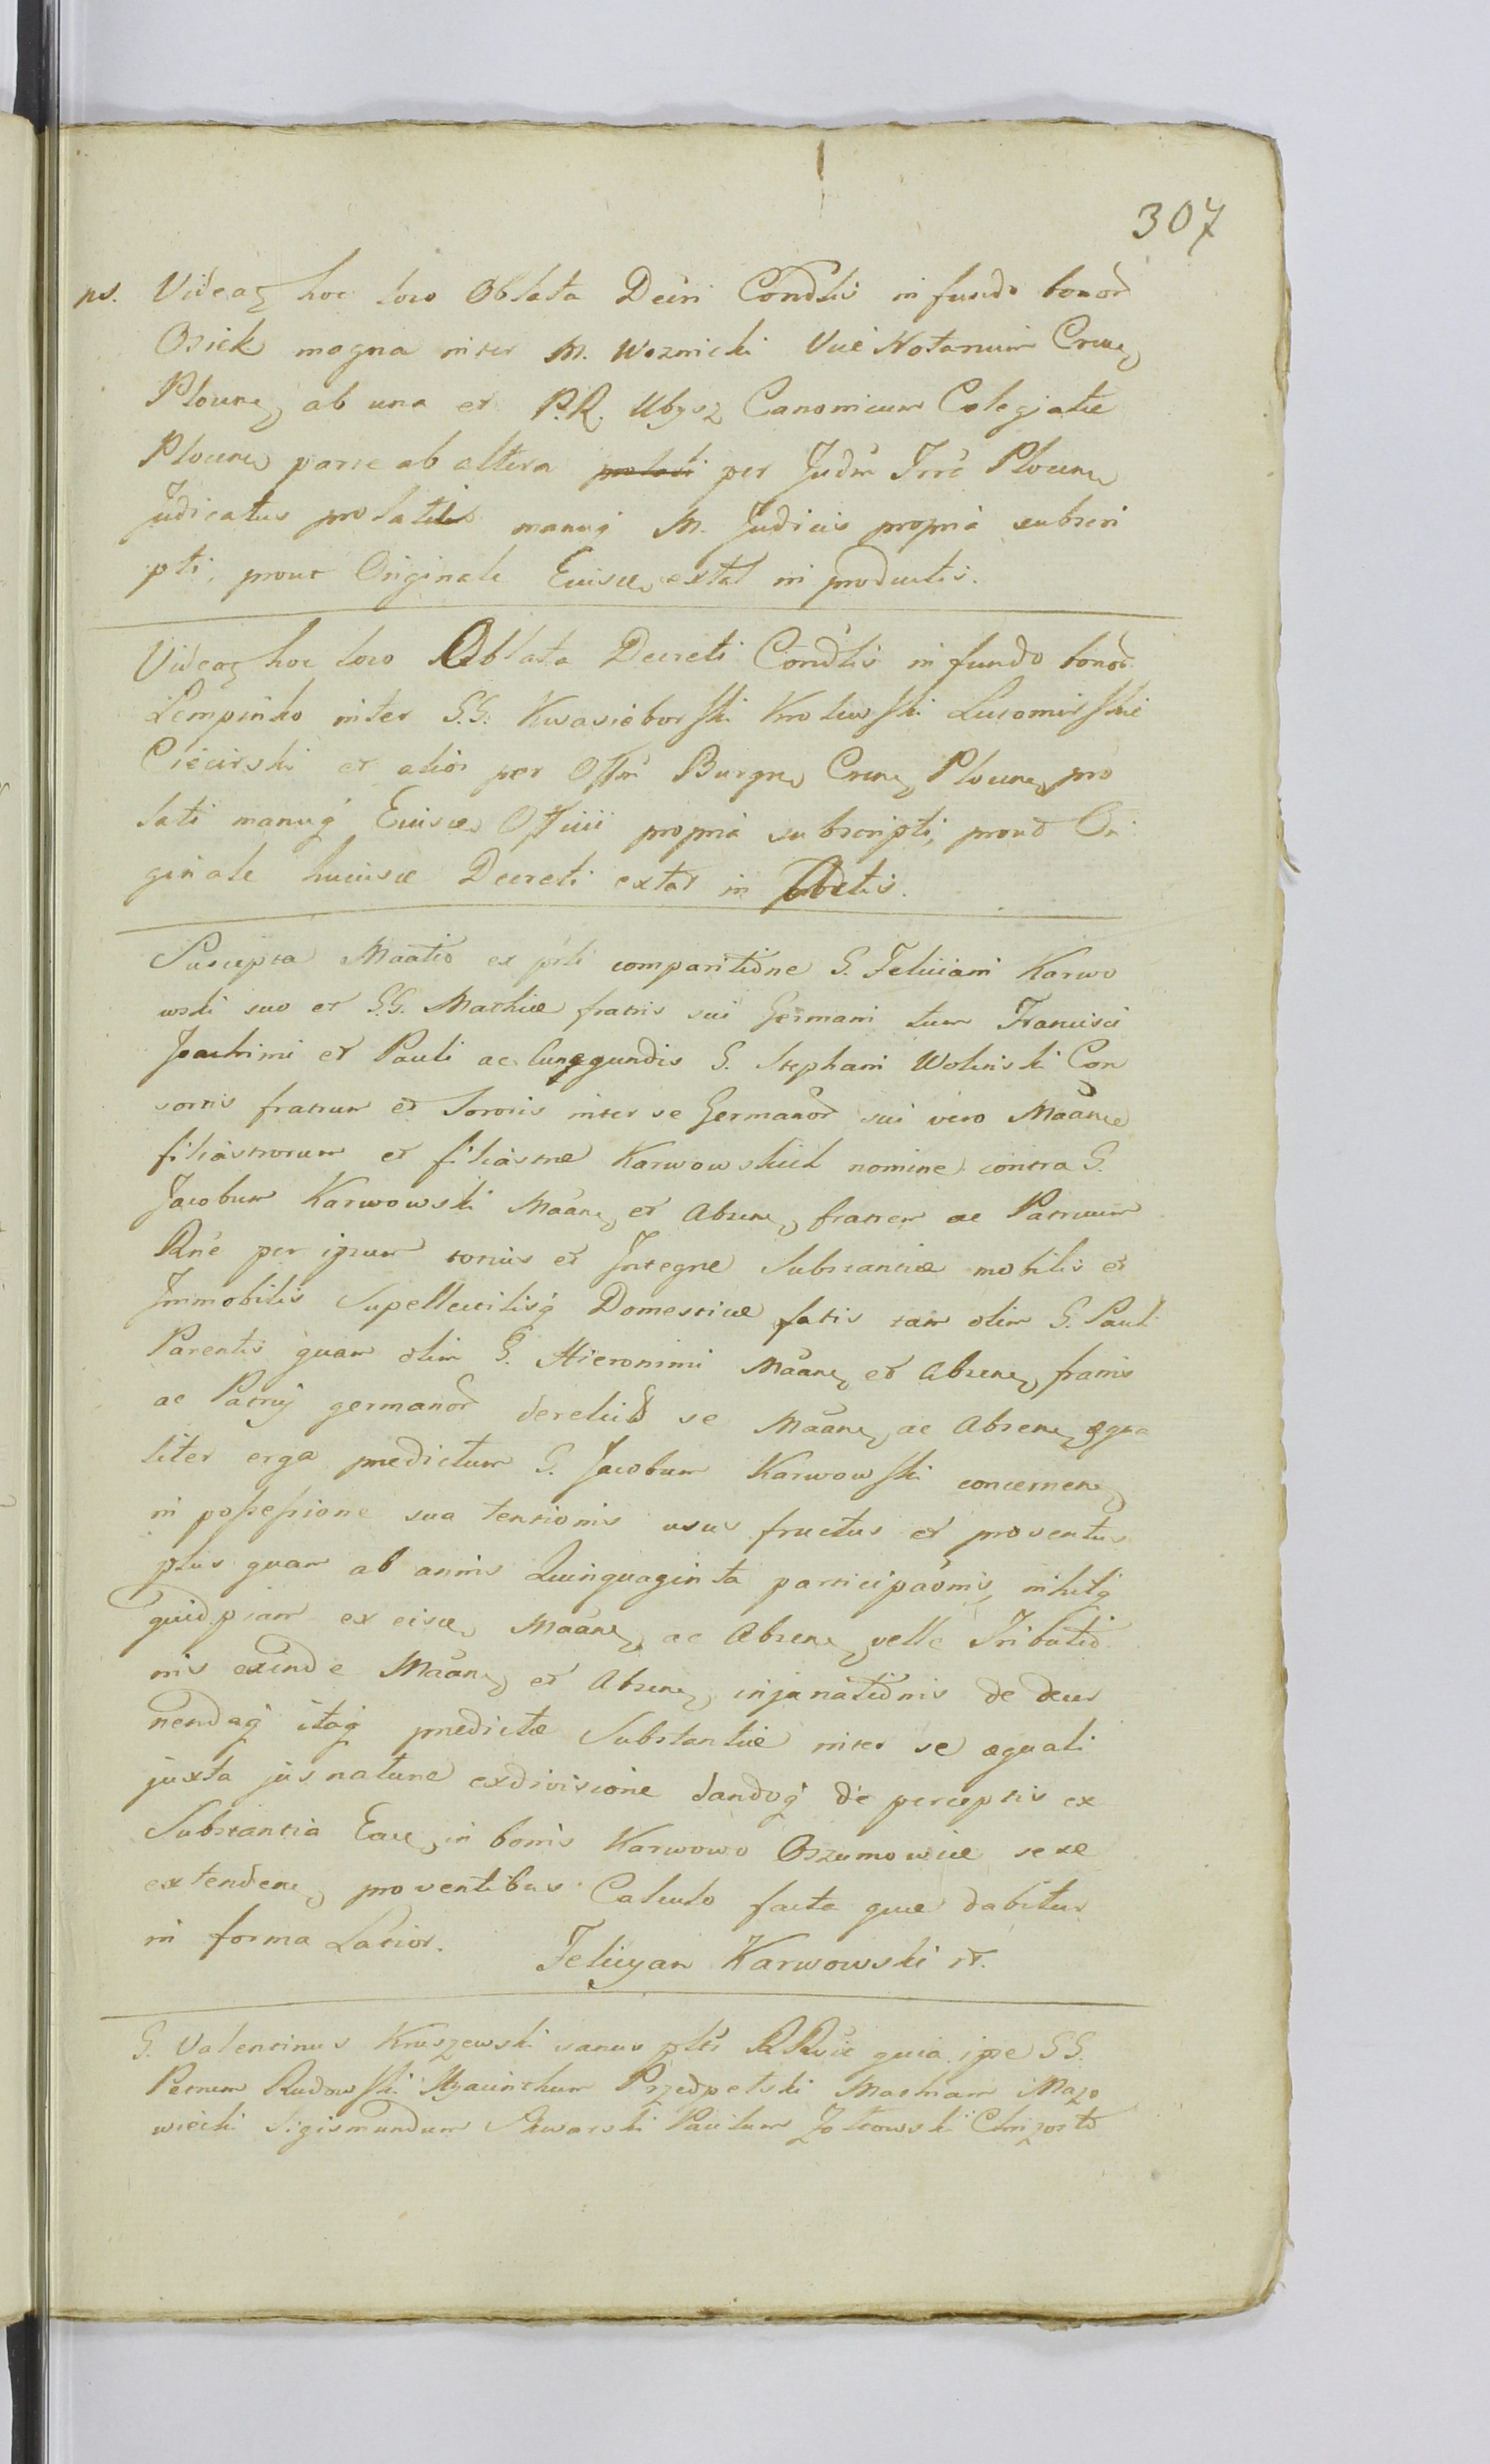 307
ns. Videaz hoc loco Oblata Decri Condlis in fundo bonor
Osiek magna inter M. Woznicki Vice Notarium Crens
Plocens ab una et P.R. Ubysz Canonicum Colegiatæ
Plocens parte ab altera per Judm Trre Plocens
Judicatus prolatilis manuq M. Judicis propria subscri
pti, prout Originale Eiusce extat in productis.
Videaz hoc loco Oblata Decreti Condlis in fundo bonor
Lempinko inter G.G. Kwasiebor ski Kroliw ski Lucomir skie
Ciecirski et alior per Offm Burgen Crens Plocens pro
lati manuq Eiusce Officii propria subscripti, prout Ori
ginale huiusce Decreti extat in Actis.
Suscepta Maatio ex prli comparitione G. Feliciani Karwo
wski suo et G.G. Mathiæ fratris sui Germani tum Francisci
Joachimi et Pauli ac Cunegundis G. Stephani Wolinski Con
sortis fratrum et Sororis inter se Germanor sui vero Maans
filiastrorum et filiastræ Karwowskich nomine contra G.
Jacobum Karwowski Maans et Absens fratrem ac Patruum
Rne per ipsum totius et Integræ Substantiæ mobilis et
Immobilis Supellectilisq Domesticæ fatis tam olim G. Pauli
Parentis quam olim G. Hieronimi Maans et Absens fratris
ac Patrui germanor derelict se Maans ac Absens æqua
liter erga prædictum G. Jacobum Karwow ski concernens
in possessione sua tentionis usus fructus et proventus
plus quam ab annis Quinquaginta participaonis, nihilq
quidpiam ex eisce Maans ac Absens velle Tributio
nis exinde Maans et Absens injuriationis de decer
nendaq itaq prædictæ Substantiæ inter se æquali
juxta jus naturæ exdivisione dandoq de perceptis ex
Substantia Eace in bonis Karwowo Orszumowice sese
extendens proventibus Calculo facta quæ dabitur
in forma Latior. Felicyan Karwowski
G. Valentinus Kruszewski sanus quia ipse GG.
Petrum Rudow ski Hyacinthum Przedpelski Mathiam Mazo
wiecki Sigismundum Skwarski Paulum Zolkowski Chrizosto